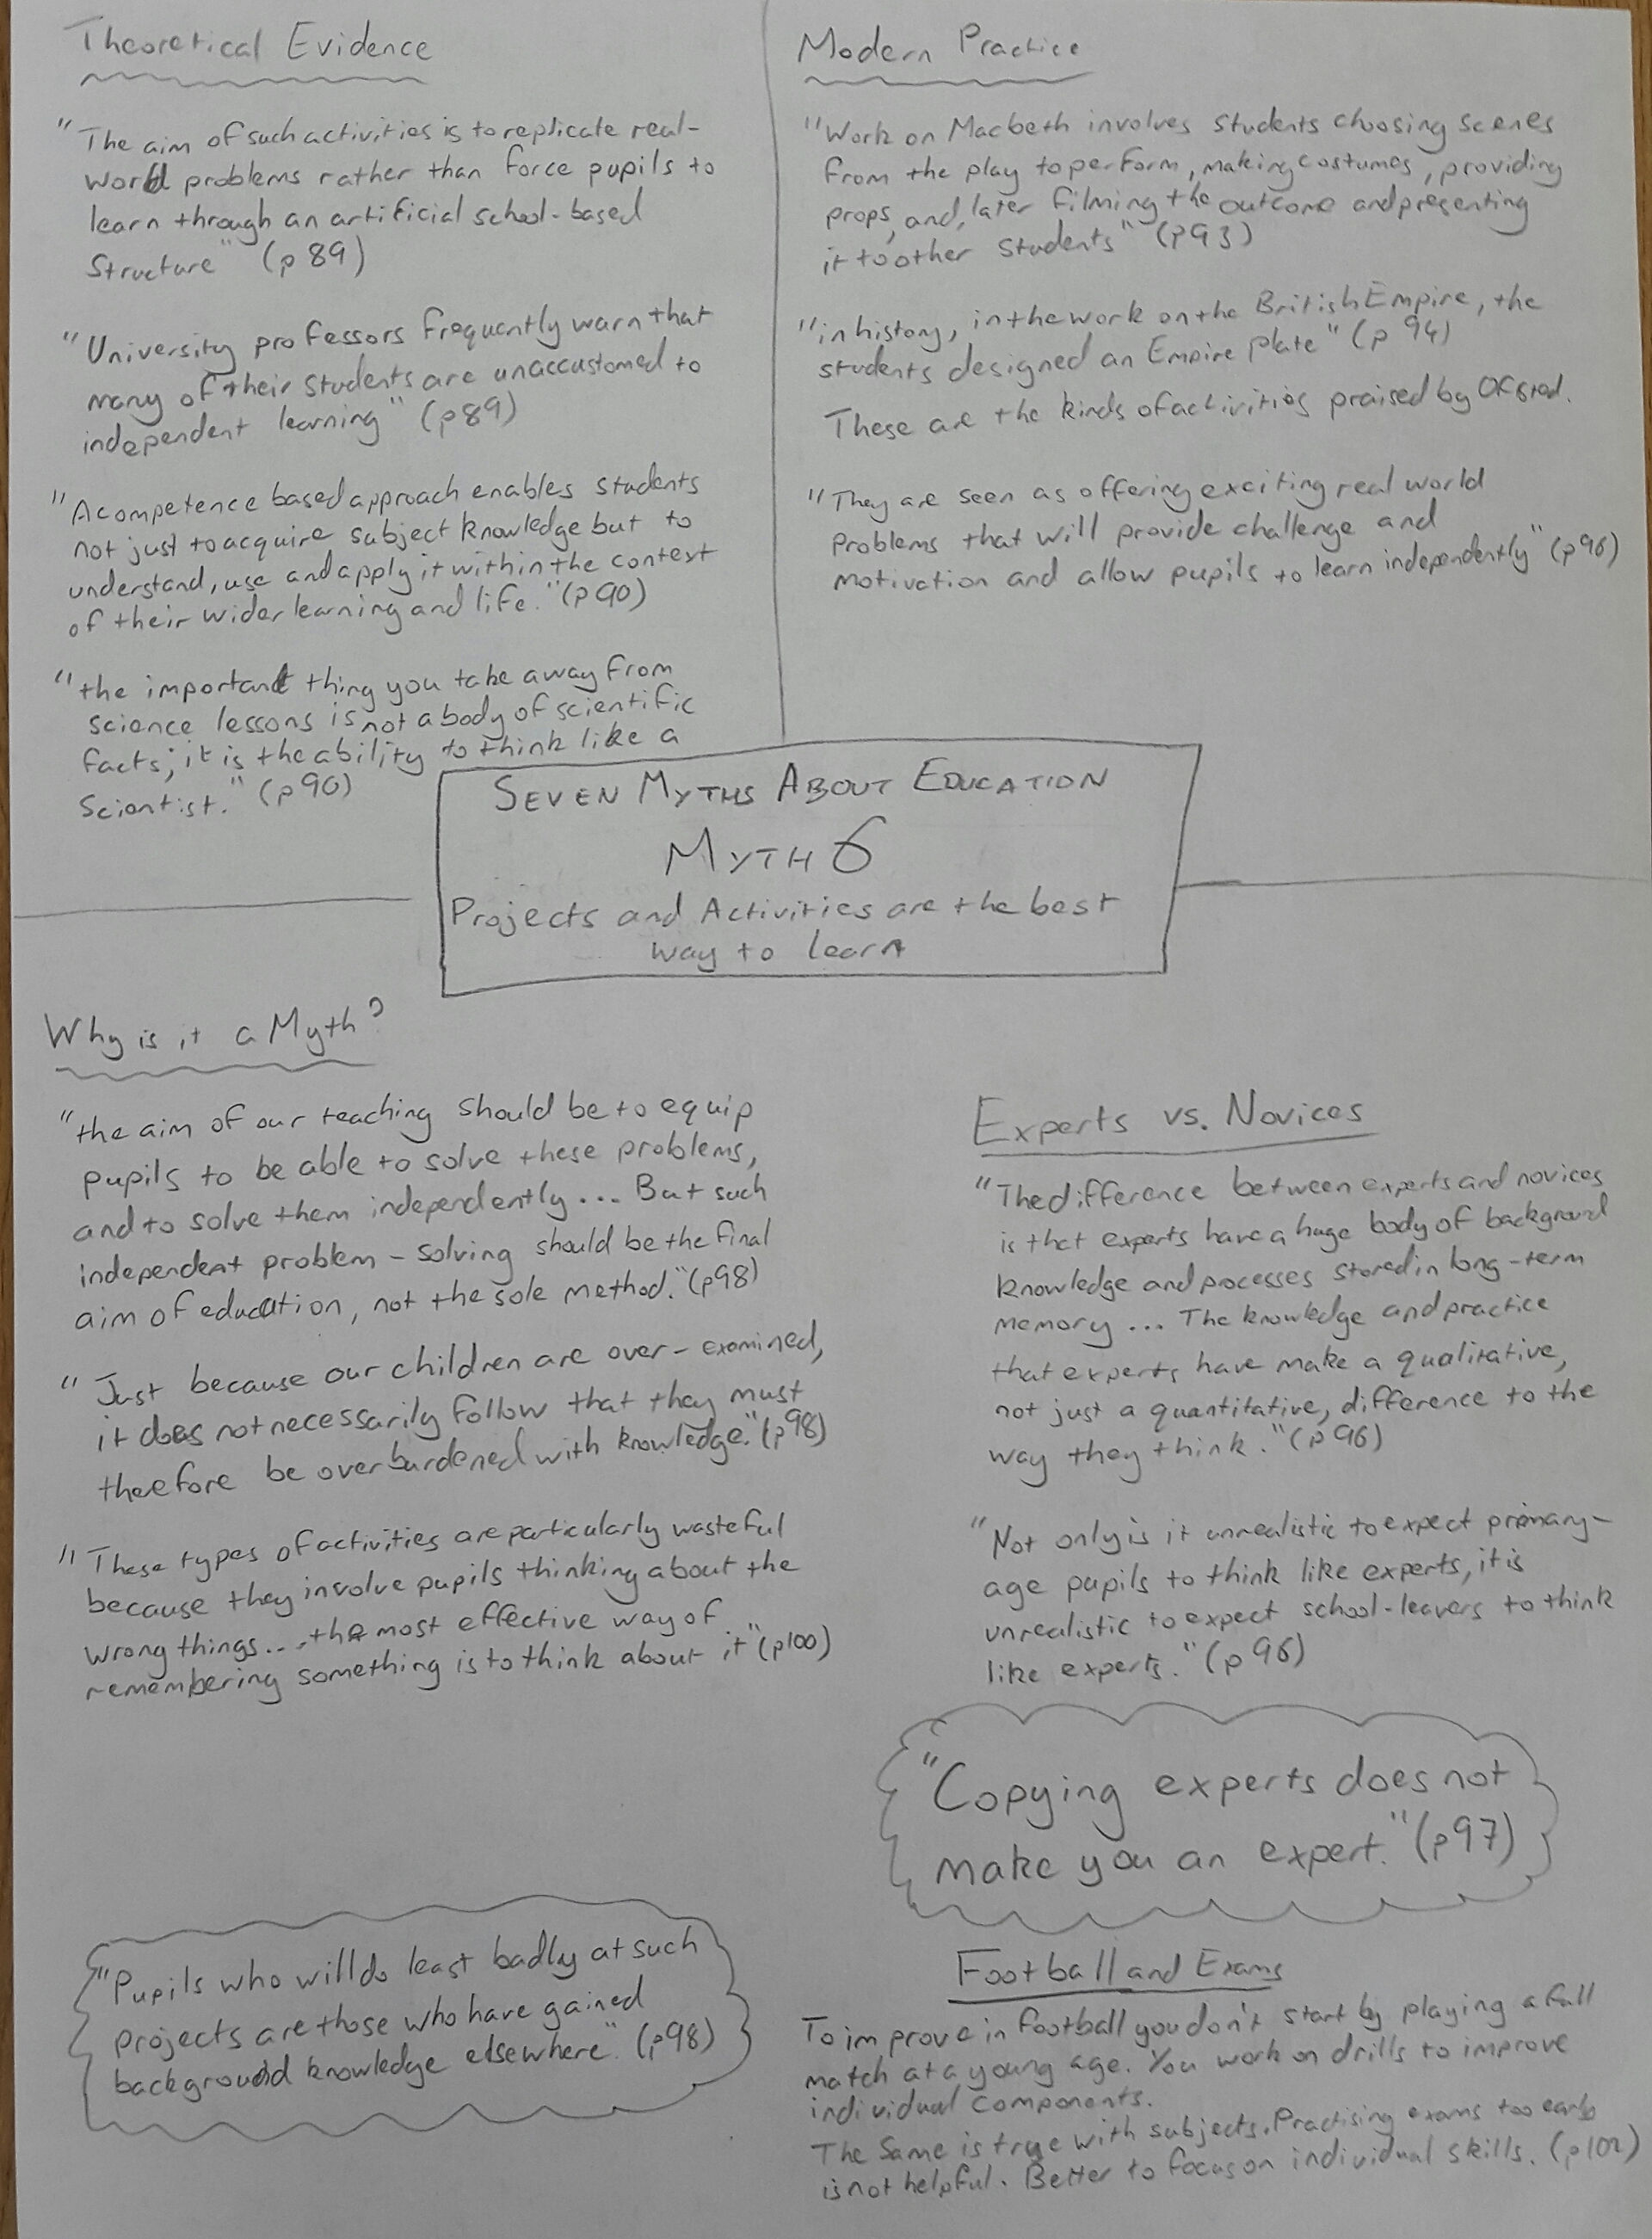 Theoretical Evidence
"The aim of such activities is to replicate real-
world problems rather than force pupils to
learn through an artificial school-based
structure" (p89)
"University professors frequently warn that
many of their students are unaccustomed to
independent learning" (p89)
"A competence based approach enables students
not just to acquire subject knowledge but to
understand, use and apply it within the context
of their wider learning and life." (p90)
"the important thing you take away from
science lessons is not a body of scientific
facts; it is the ability to think like a
scientist." (p90)
Modern Practice
"Work on Macbeth involves students choosing scenes
from the play to perform, making costumes, providing
props, and, later filming the outcome and presenting
it to other students" (p93)
"in history, in the work on the British Empire, the
students designed an Empire plate" (p94)
These are the kinds of activities praised by Ofsted.
"They are seen as offering exciting real world
problems that will provide challenge and
motivation and allow pupils to learn independently" (p96)
SEVEN MYTHS ABOUT EDUCATION
MYTH 6
Projects and Activities are the best
way to learn
Why is it a Myth?
"the aim of our teaching should be to equip
pupils to be able to solve these problems,
and to solve them independently... But such
independent problem-solving should be the final
aim of education, not the sole method." (p98)
"Just because our children are over-examined,
it does not necessarily follow that they must
therefore be overburdened with knowledge." (p98)
"These types of activities are particularly wasteful
because they involve pupils thinking about the
wrong things... the most effective way of
remembering something is to think about it" (p100)
"Pupils who will do least badly at such
projects are those who have gained
background knowledge elsewhere." (p98)
Experts vs. Novices
"The difference between experts and novices
is that experts have a huge body of background
knowledge and processes stored in long-term
memory... The knowledge and practice
that experts have make a qualitative,
not just a quantitative, difference to the
way they think." (p96)
"Not only is it unrealistic to expect primary-
age pupils to think like experts, it is
unrealistic to expect school-leavers to think
like experts." (p96)
"Copying experts does not
make you an expert." (p97)
Football and Exams
To improve in football you don't start by playing a full
match at a young age. You work on drills to improve
individual components.
The same is true with subjects. Practising exams too early
is not helpful. Better to focus on individual skills. (p102)